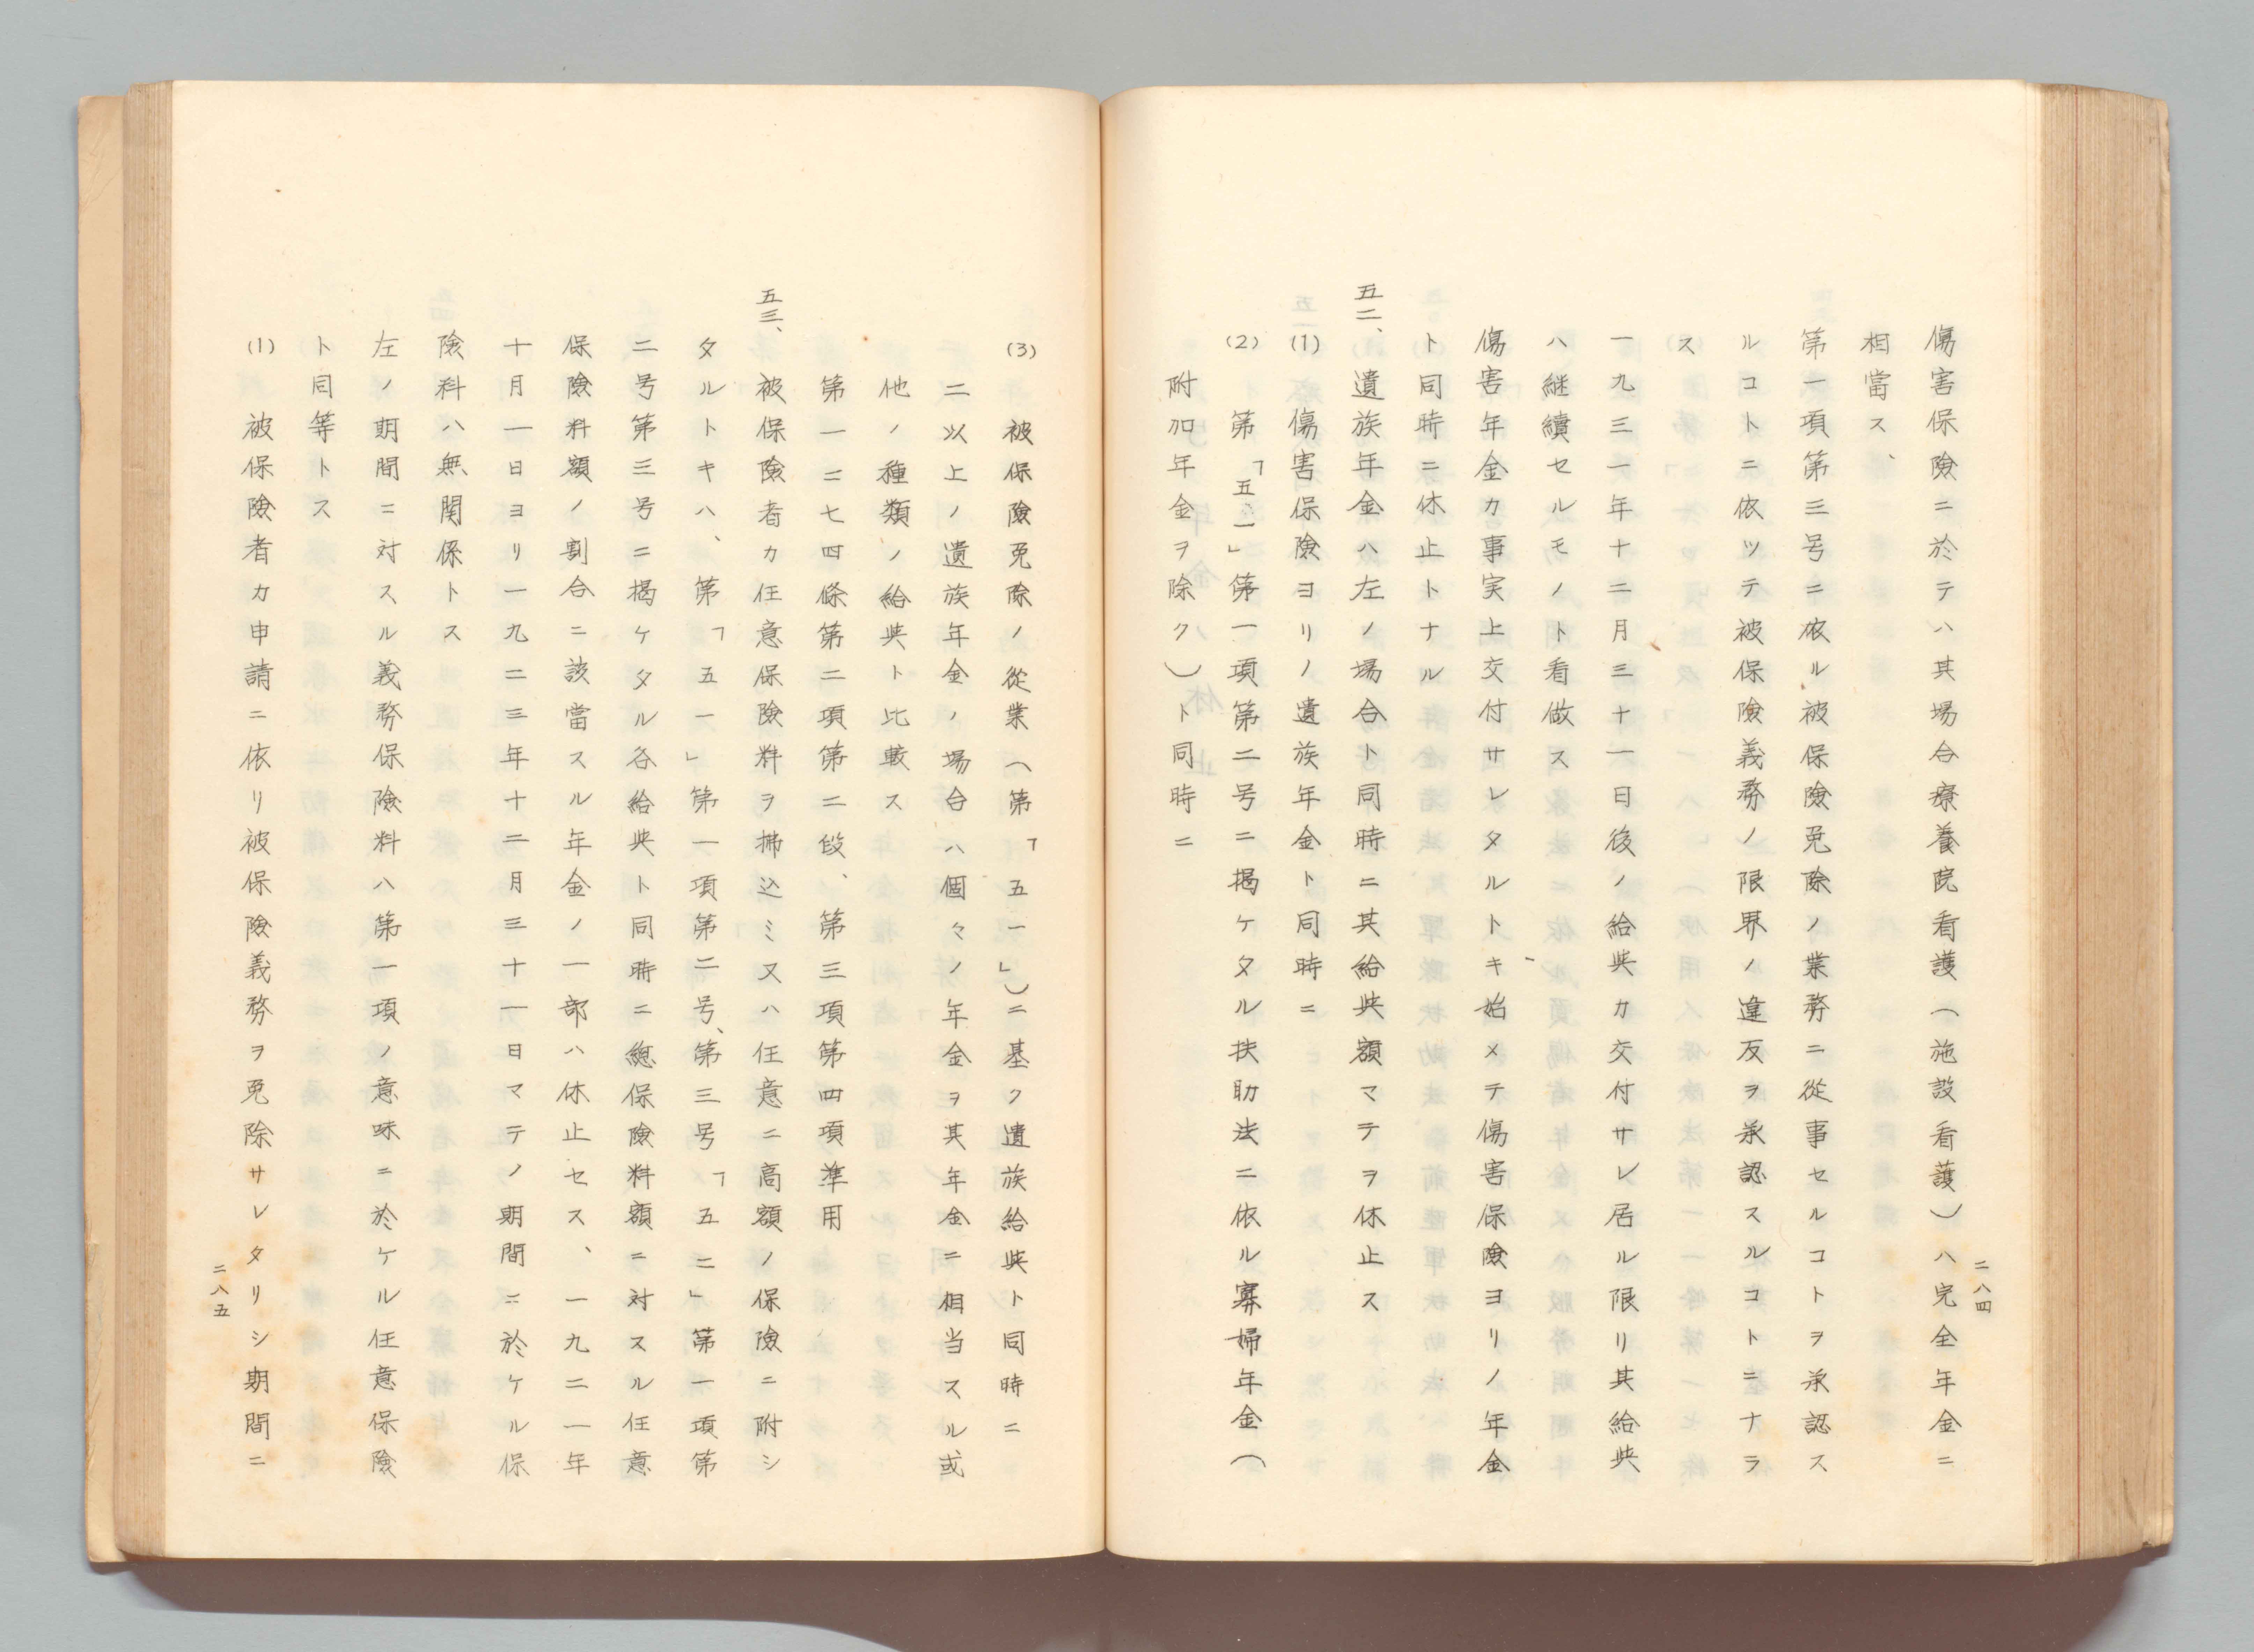 傷害保險ニ於テハ其場合療養院看護(施設看護)ハ完全年金ニ
相當ス、
第一項第三号ニ依ル被保險免除ノ業務ニ從事セルコトヲ承認ス
ルコトニ依ツテ被保險義務ノ限界ノ違反ヲ承認スルコトニナラ
ス
一九三一年十二月三十一日後ノ給與カ交付サレ居ル限リ其給與
ハ継續セルモノト看做ス
傷害年金カ事実上交付サレタルトキ始メテ傷害保險ヨリノ年金
ト同時ニ休止トナル
五二、遺族年金ハ左ノ場合ト同時ニ其給與額マテヲ休止ス
(1) 傷害保險ヨリノ遺族年金ト同時ニ
(2) 第「五一」條一項第二号ニ掲ケタル扶助法ニ依ル寡婦年金(
附加年金ヲ除ク)ト同時ニ
二八四
(3) 被保險免除ノ從業(第「五一」)ニ基ク遺族給與ト同時ニ
二以上ノ遺族年金ノ場合ハ個々ノ年金ヲ其年金ニ相当スル或
他ノ種類ノ給與ト比較ス
第一二七四條第二項第二段、第三項第四項準用
五三、被保險者カ任意保險料ヲ拂込ミ又ハ任意ニ高額ノ保險ニ附シ
タルトキハ、第「五一」第一項第二号、第三号「五二」第一項第
二号第三号ニ掲ケタル各給與ト同時ニ總保險料額ニ対スル任意
保險料額ノ割合ニ該當スル年金ノ一部ハ休止セス、一九二一年
十月一日ヨリ一九二三年十二月三十一日マテノ期間ニ於ケル保
險科ハ無関係トス
左ノ期間ニ対スル義務保險料ハ第一項ノ意味ニ於ケル任意保險
ト同等トス
(1) 被保險者カ申請ニ依リ被保險義務ヲ免除サレタリシ期間ニ
二八五